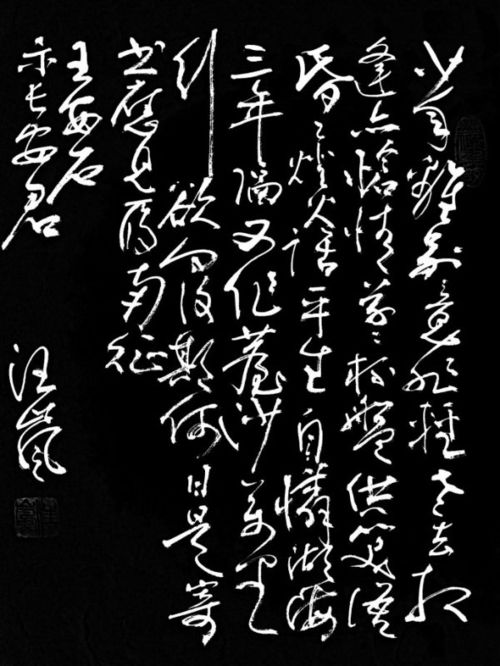 少年離別意非輕老去相
逢亦愴情草〻杯盤供笑語
昏〻燈火話平生自憐湖海
三年隔又作塵沙萬里
行欲問後期何日是寄
書應見雁南征
王安石
示长安君
汪嵐